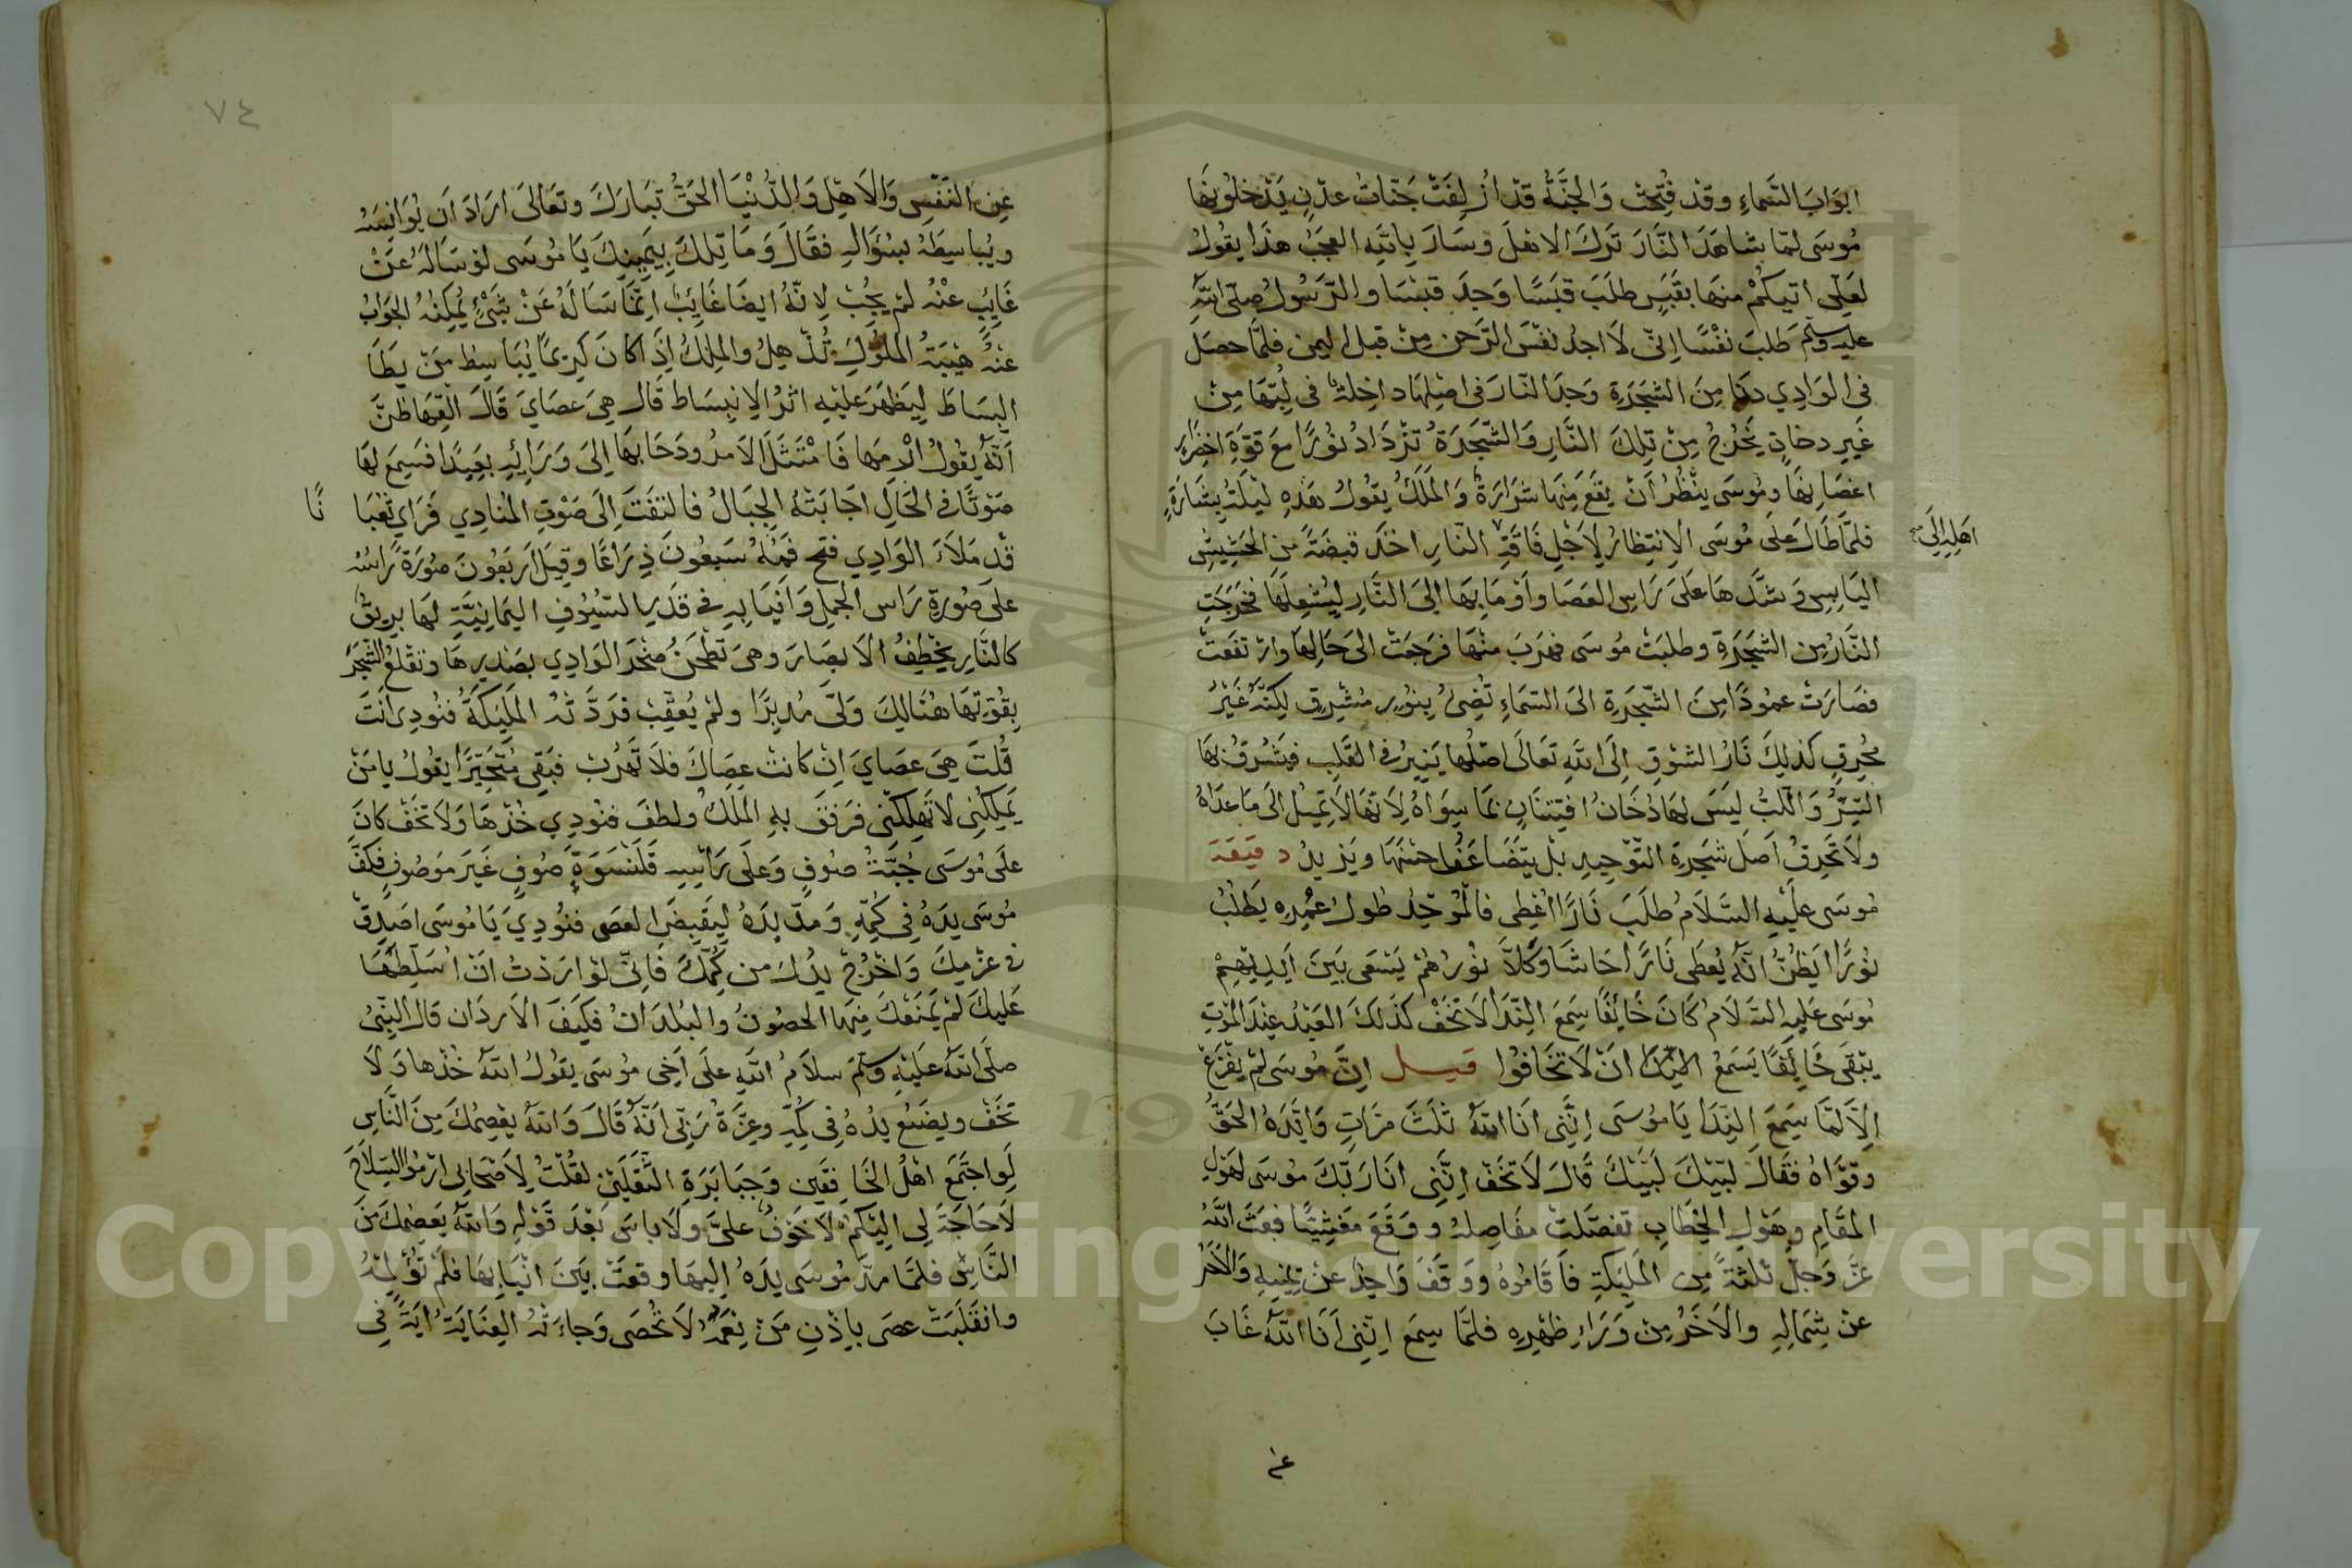 ابواب السماء وقد فتحت والجنة قد ازلفت جنات عدن يدخلونها
موسى لما شاهد النار ترك الاهل وسار يا لله العجب هذا يقول
لعلى اتيكم منها بقبس طلب قبسا وجد قبسا والرسول صلى الله
عليه وسلم طلب نفسا انى لاجد نفس الرحمن من قبل اليمن فلما حصل
فى الوادي دنا من الشجرة وجد النار فى اصلها داخلة فى لبها من
غير دخان يخرج من تلك النار والشجرة تزداد نورا مع قوة اخضرار
اغصانها وموسى ينظر ان يقع منها شرارة والملك يقول هذه ليلة بشارة
اهله الى
فلما طال على موسى الانتظار لاجل فاقة النار اخذ قبضة من الحشيش
اليابس وشدها على راس العصا واوما بها الى النار ليشعلها فخرجت
النار من الشجرة وطلبت موسى فهرب منها فرجعت الى حالها وارتفعت
فصارت عمودا من الشجرة الى السماء تضئ بنور مشرق لكنه غير
محرق كذلك نار الشوق الى الله تعالى اصلها ينير فى القلب فيشرق بها
السر واللب ليس لها دخان افتتان بما سواه لانها لا تميل الى ما عداه
ولا تحرق اصل شجرة التوحيد بل يتضاعف حسنها ويزيد دقيقة
موسى عليه السلام طلب نارا اعطى فالموحد طول عمره يطلب
نورا ايظن انه يعطى نارا حاشا وكلا نورهم يسعى بين ايديهم
موسى عليه السلام كان خائفا سمع الندا لا تخف كذلك العبد عند الموت
يبقى خائفا يسمع ان لا تخافوا قيل ان موسى لم يفزع
الا لما سمع الندا يا موسى اننى انا الله ثلث مرات وايده الحق
وقواه فقال لبيك لبيك قال لا تخف اننى انا ربك موسى لهول
المقام وهول الخطاب تفصلت مفاصله ووقع مغشيا فبعث الله
عز وجل ثلثة من المليكة فاقاموه ووقف واحد عن يمينه والاخر
عن شماله والاخر من وراء ظهره فلما سمع اننى انا الله غاب
عن
٧٤
عن النفس والاهل والدنيا الحق تبارك وتعالى اراد ان يوانسه
ويباسطه بسؤاله فقال وما تلك بيمينك يا موسى لو ساله عن
غايب عنه لم يجب لانه ايضا غايب انما ساله عن شئ يمكنه الجواب
عنه هيبة الملوك تذهل والملك اذا كان كريما يباسط من يطا
البساط ليظهر عليه اثر الانبساط قال هى عصاي قال القها ظن
انه يقول ارمها فامتثل الامر ودحا بها الى ورائه بعيدا فسمع لها
صوتا فى الحال اجابته الجبال فالتفت الى صوت المنادي فراي ثعبا
نا
قد ملا الوادي فتح فمه سبعون ذراعا وقيل اربعون صورة راسه
على صورة راس الجمل وانيابه فى قدر السيوف اليمانية لها بريق
كالنار يخطف الابصار وهى تطحن صخر الوادي بصدرها وتقلع الشجر
بقوتها هنالك ولى مدبرا ولم يعقب فردته المليكة فنودى انت
قلت هى عصاي ان كانت عصاك فلا تهرب فبقى متحيرا يقول يا من
يملكنى لا تهلكنى فرفق به الملك ولطف فنودي خذها ولا تخف كان
على موسى جبة صوف وعلى راسه قلنسوة صوف غير موصوف فكف
موسى يده فى كمه ومد يده ليقبض العصى فنودي يا موسى اصدق
فى عزمك واخرج يدك من كمك فانى لو اردت ان اسلطها
عليك لم يمنعك منها الحصون والبلدان فكيف الاردان قال النبى
صلى الله عليه وسلم سلام الله على اخى موسى يقول الله خذها ولا
تخف ويضع يده فى كمه وعزة ربى انه قال والله يعصمك من الناس
لو اجتمع اهل الخافقين وجبابرة الثقلين لقلت لاصحابى ارموا السلاح
لا حاجة لى اليكم لا خوف على ولا باس بعد قوله والله يعصمك من
الناس فلما مد موسى يده اليها وقعت بين انيابها فلم تؤلمه
وانقلبت عصى باذن من نعمه لا تحصى وجاءته العناية اية فى